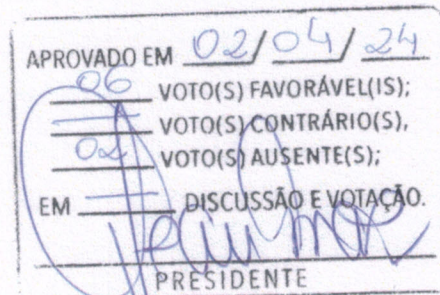 APROVADO EM 02/04/24
06 VOTO(S) FAVORÁVEL(IS);
— VOTO(S) CONTRÁRIO(S),
02 VOTO(S) AUSENTE(S);
EM — DISCUSSÃO E VOTAÇÃO.
PRESIDENTE